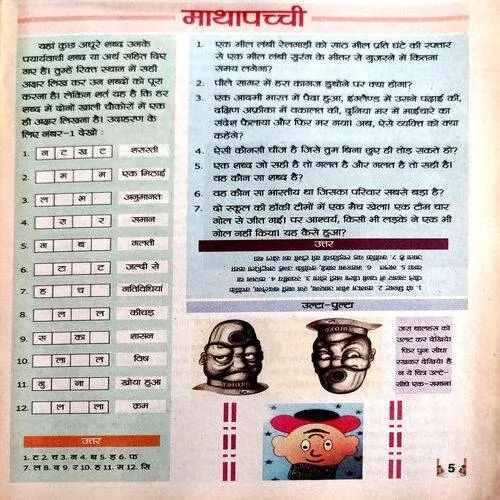 माथापच्ची
यहां कुछ अधूरे शब्द उनके
पर्यायवाची शब्द या अर्थ सहित दिए
गए हैं। तुम्हें रिक्त स्थान में सही
अक्षर लिख कर उन शब्दों को पूरा
करना है। लेकिन शर्त यह है कि हर
शब्द में दोनों खाली चौकोरों में एक
ही अक्षर लिखना है। उदाहरण के
लिए नंबर-1 देखो :
1. न ट ख ट शरारती
2. म म एक मिठाई
3. ल भ अनुमानतः
4. रा र समान
5. ग ब गलती
6. टा ट जल्दी से
7. ह च गतिविधियां
8. ल ल कीचड़
9. स का शासन
10. ला ल विष
11. गु ना खोया हुआ
12. ल ला क्रम
उत्तर
1. ट 2. च 3. न 4. ब 5. ड़ 6. फ
7. ल 8. द 9. र 10. ह 11. म 12. सि
1. एक मील लंबी रेलगाड़ी को साठ मील प्रति घंटे की रफ्तार
से एक मील लंबी सुरंग के भीतर से गुजरने में कितना
समय लगेगा?
2. पीले सागर में हरा कागज डुबोने पर क्या होगा?
3. एक आदमी भारत में पैदा हुआ, इंग्लैण्ड में उसने पढ़ाई की,
दक्षिण अफ्रीका में वकालत की, दुनिया भर में भाईचारे का
संदेश फैलाया और फिर मर गया। अब, ऐसे व्यक्ति को क्या
कहेंगे?
4. ऐसी कौनसी चीज है जिसे तुम बिना छुए ही तोड़ सकते हो?
5. एक शब्द जो सही है तो गलत है और गलत है तो सही है।
वह कौन सा शब्द है?
6. वह कौन सा भारतीय था जिसका परिवार सबसे बड़ा है?
7. दो स्कूल की हॉकी टीमों में एक मैच खेला। एक टीम चार
गोल से जीत गई। पर आश्चर्य, किसी भी लड़के ने एक भी
गोल नहीं किया। यह कैसे हुआ?
उत्तर
उल्टा-पुल्टा
जरा बालहंस को
उलट कर देखिये।
फिर पुनः सीधा
रखकर देखिये। है
न ये चित्र उल्टे-
सीधे एक-समान।
5